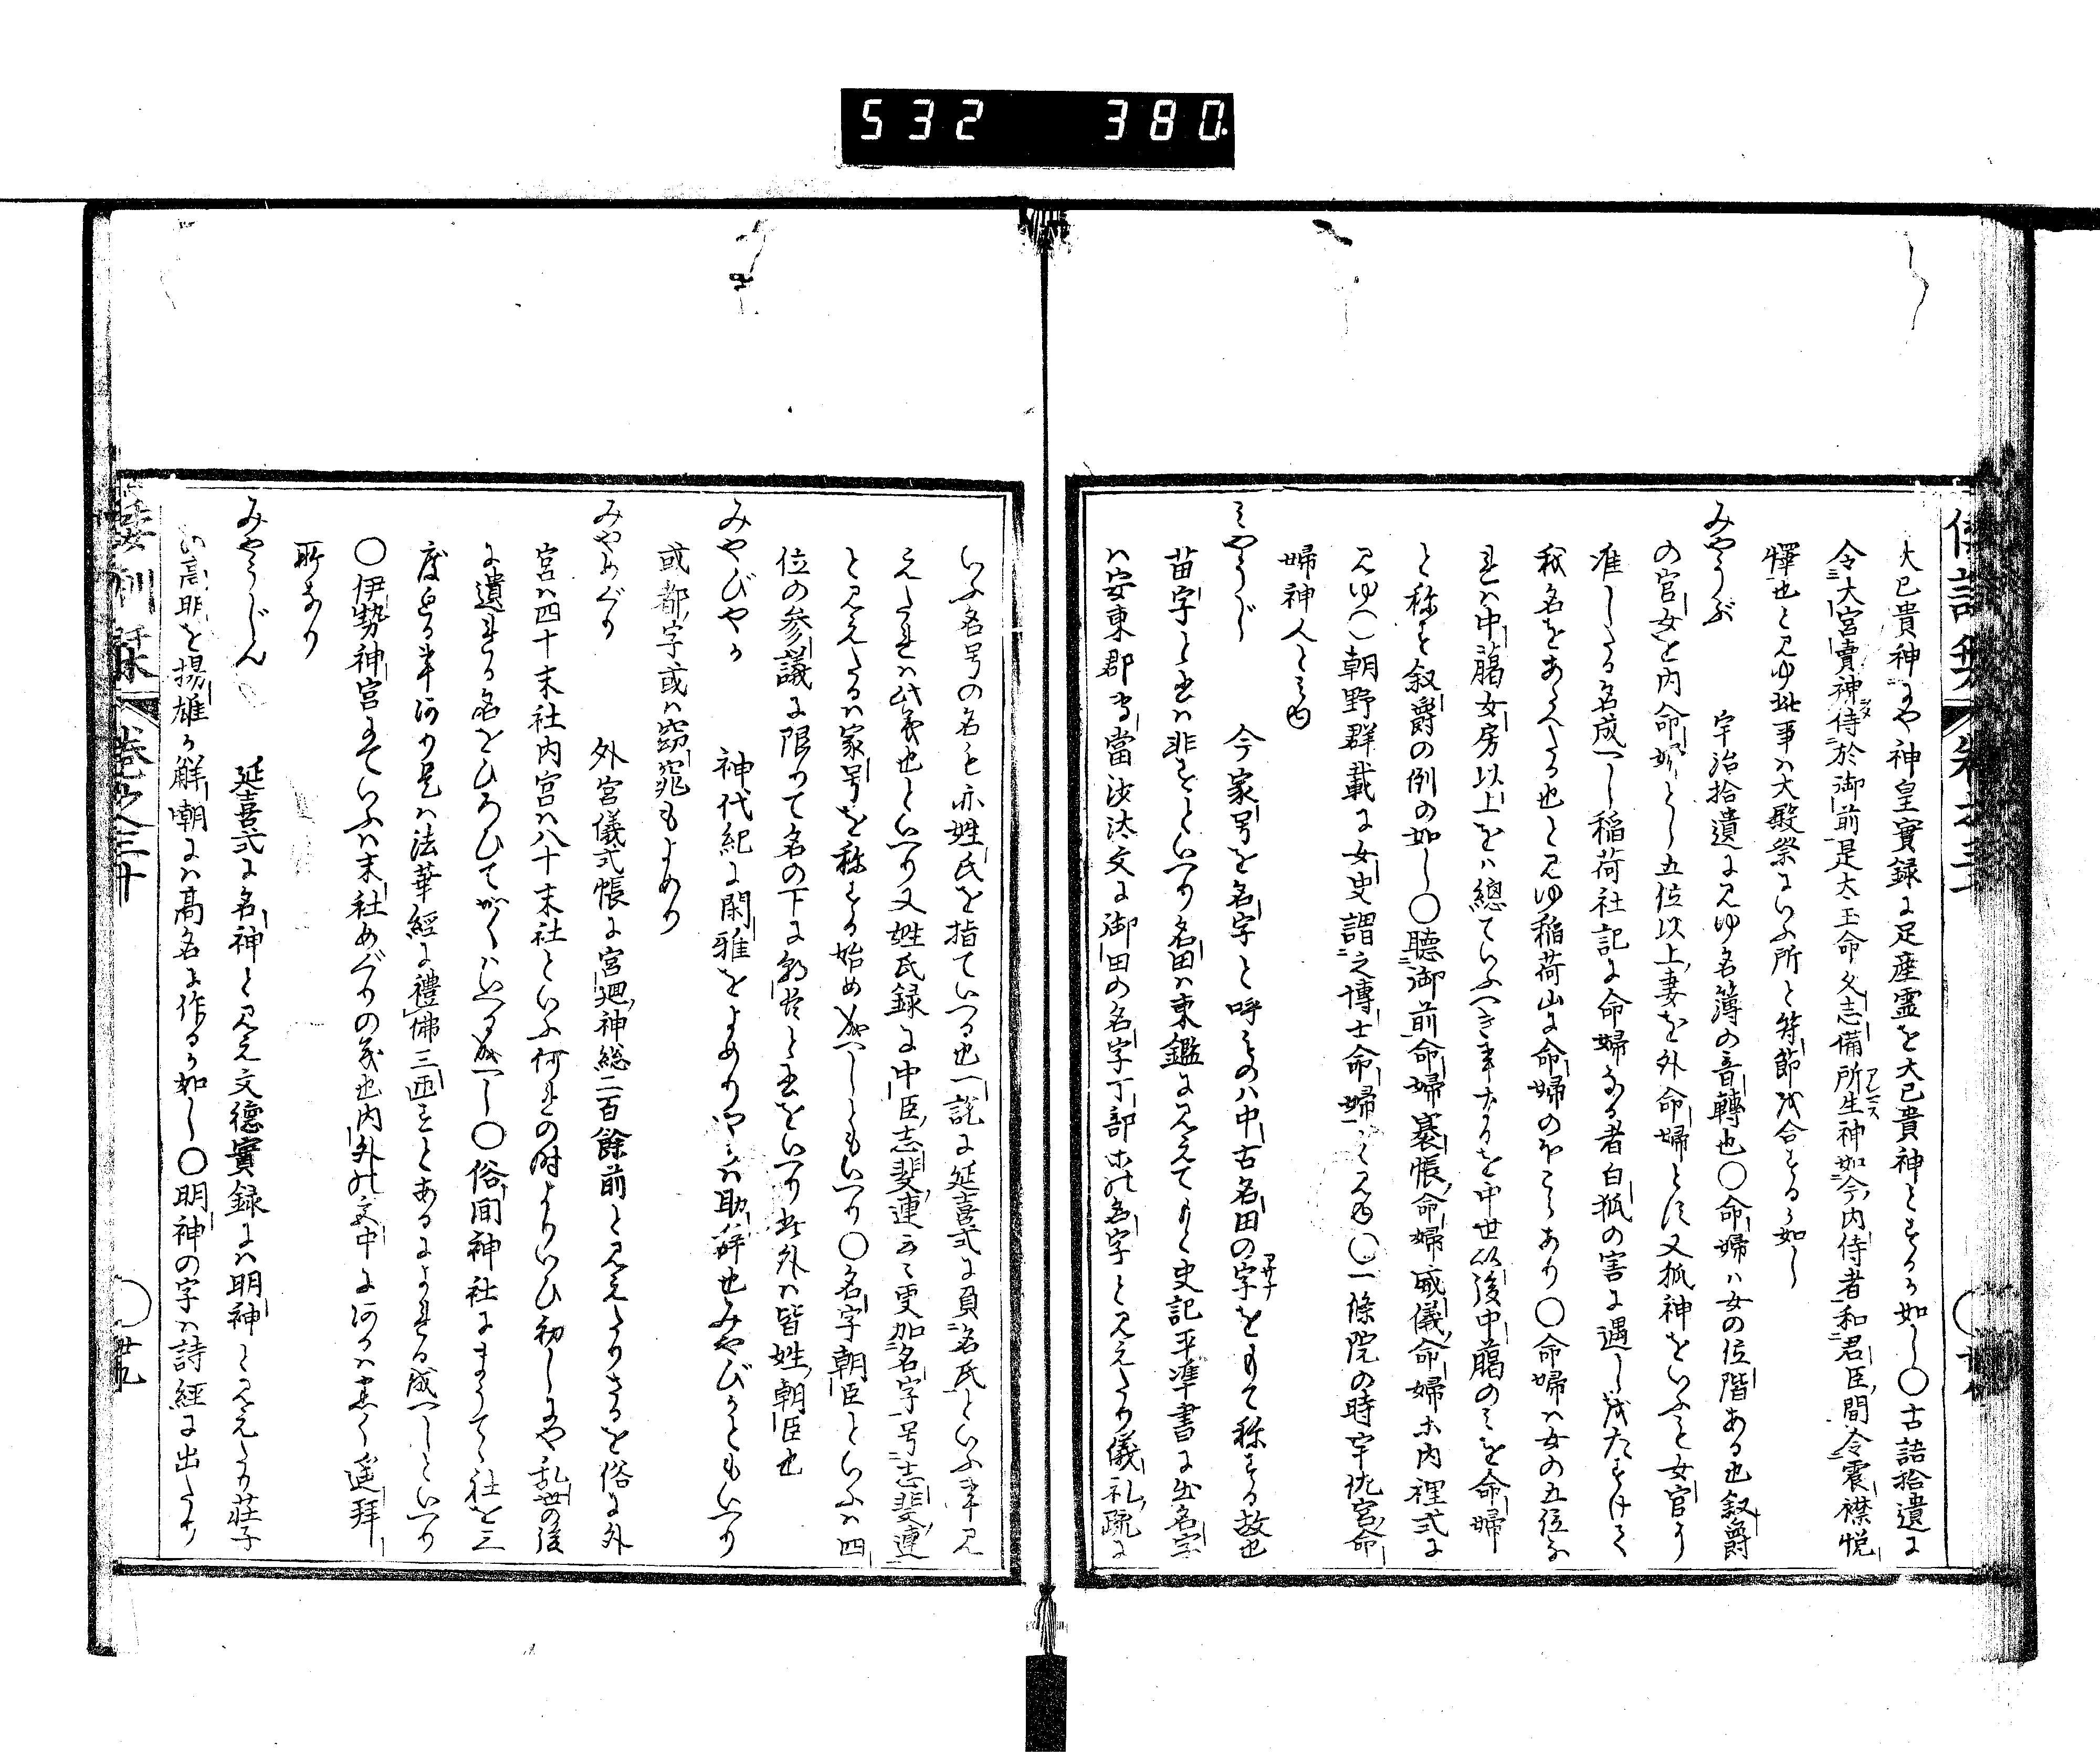 532 380
大已貴神にや神皇實録に足産霊を大已貴神とするか如し〇古語拾遺に
令大宮賣神侍於御前是太玉命久志備所生神如今内侍者和君臣間令震襟悦
懌也と見ゆ此事ハ大殿祭にいふ所と符節を合するか如し
みやうぶ 宇治拾遺に見ゆ名簿の音轉也〇命婦ハ女の位階ある也叙爵
の官女を内命婦とし五位以上妻を外命婦とす又狐神をいふと女官に
准したる名成へし稲荷社記に命婦なる者白狐の害に遇しをたすけて
我名をあたへたる也と見ゆ稲荷山に命婦のほこらあり〇命婦ハ女の五位な
れハ中臈女房以上をハ總ていふへき事なるを中世以後中臈のミを命婦
と称す叙爵の例の如し〇聴御前命婦褰帳命婦威儀命婦ホ内裡式に
見ゆ〇朝野群載に女史謂之博士命婦とみゆ〇一條院の時宇佐宮命
婦神人とみゆ
ミやうじ 今家号を名字と呼ものハ中古名田の字をもて称する故也
苗字と書ハ非すといへり名田ハ東鑑に見えてもと史記平準書に出名字
ハ安東郡専當沙汰文に御田の名字丁部ホの名字と見えたり儀礼疏に
いふ名号の名も亦姓氏を指ていへる也一説に延喜式に負名氏といふ事見
えたれハ此義也といへり又姓氏録に中臣志斐連云々更加名字号志斐連
と見えたるハ家号を称する始め成へしともいへり〇名字朝臣といふハ四
位の参議に限りて名の下に朝臣と書をいへり此外ハ皆姓朝臣也
みやびやか 神代紀に閑雅をよめりやかハ助辞也みやびかともいへり
或都字或ハ窈窕もよめり
みやめぐり 外宮儀式帳に宮廻神総二百餘前と見えたりさるを俗に外
宮ハ四十末社内宮ハ八十末社といふ何れの時よりいひ初しにや乱世の後
に遺れる名をひろひてかくハいへる成へし〇俗間神社にまうてゝ社を三
度めくる事あり是ハ法華經に禮佛三匝すとあるによれる成へしといへり
〇伊勢神宮にていふハ末社めぐりの義也内外の宮中にあるハ悉く遥拜
所なり
みやうじん 延喜式に名神と見え文德實録にハ明神と見えたり荘子
に高明を揚雄か解嘲にハ高名に作るか如し〇明神の字ハ詩經に出たり
倭訓栞 卷之三十 〇廿九